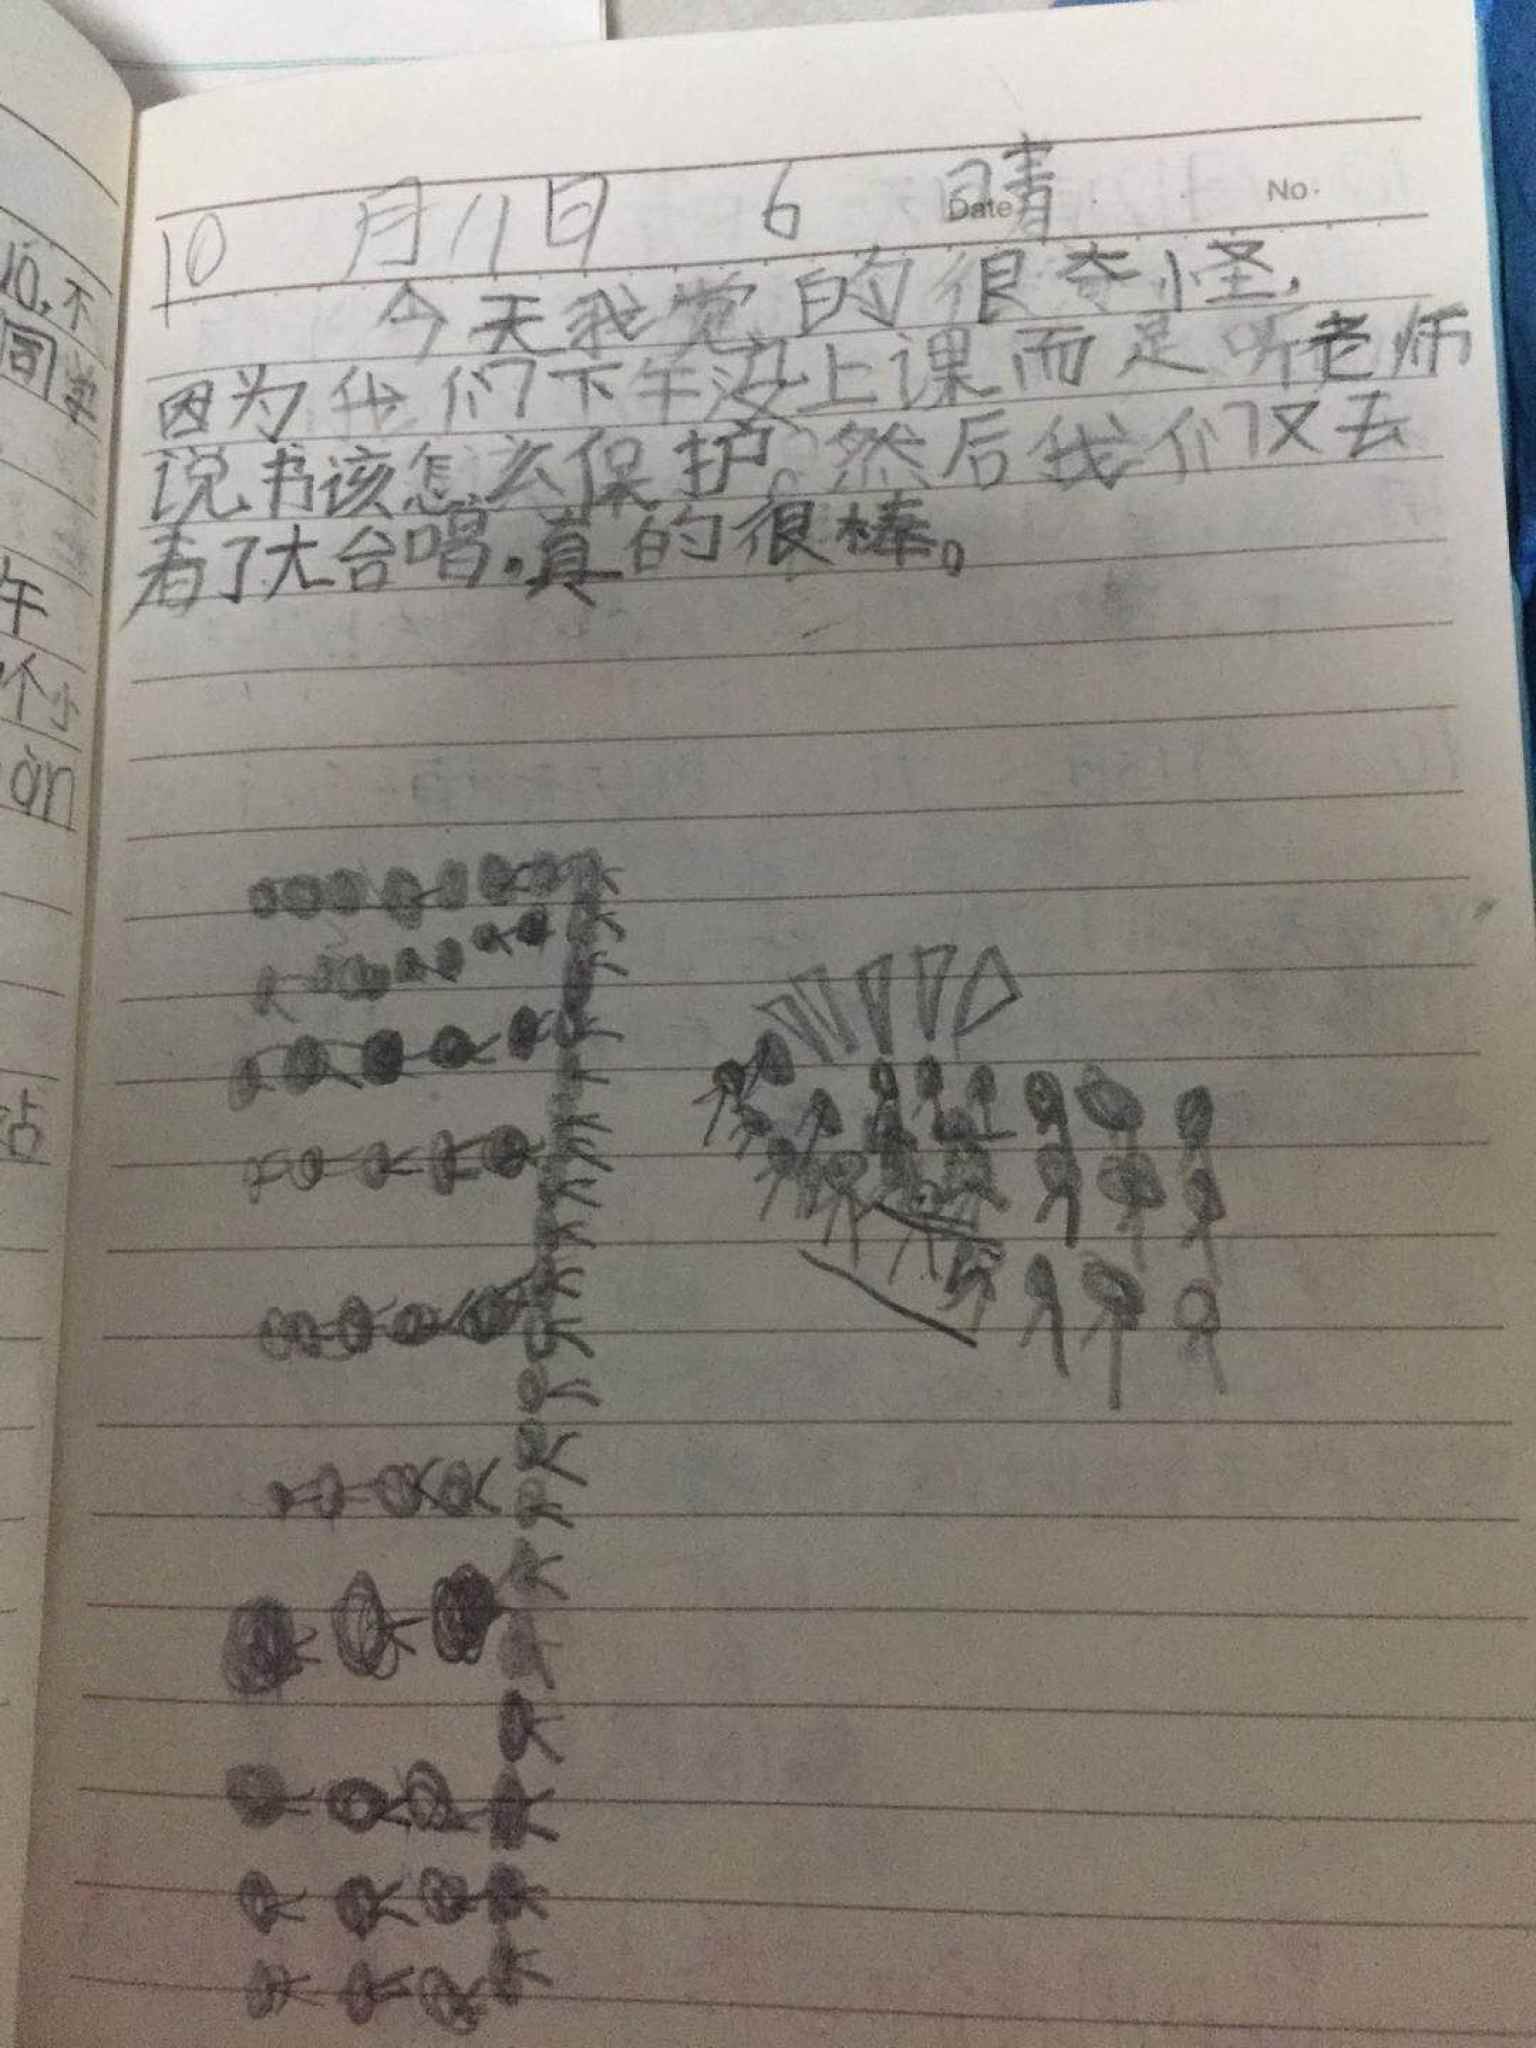 10月11日 6 晴
Date No.
今天我觉的很奇怪,
因为我们下午没上课而是听老师
说书该怎么保护。然后我们又去
看了大台唱.真的很棒。
10,不
同学
午
个小
àn
站